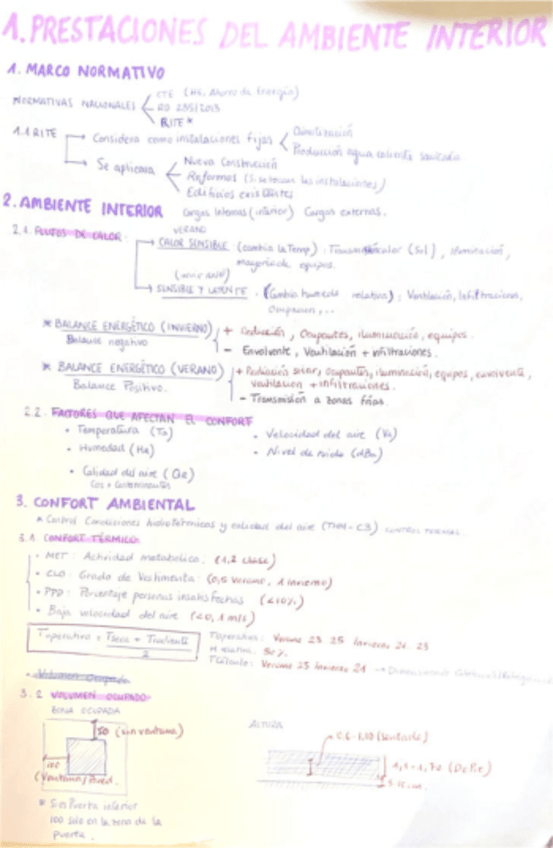 1. PRESTACIONES DEL AMBIENTE INTERIOR
1. MARCO NORMATIVO
NORMATIVAS NACIONALES
CTE (HE. Ahorro de Energía)
RD 235/2013
RITE *
1.1 RITE
Considera como instalaciones fijas
Climatización
Producción agua caliente sanitaria
Se aplicara
Nueva Construcción
Reformas (Si se tocan las instalaciones)
Edificios existentes
2. AMBIENTE INTERIOR
Cargas Internas (interior) Cargas externas.
2.1. FLUJOS DE CALOR:
VERANO
CALOR SENSIBLE (cambia la Temp) : (Sol), iluminación,
mayoría de equipos.
SENSIBLE Y LATENTE : (Cambia humedad relativa) : Ventilación, Infiltraciones,
Ocupación, ...
* BALANCE ENERGÉTICO (INVIERNO)
Balance negativo
+ Radiación, Ocupantes, iluminación, equipos.
- Envolvente, Ventilación + infiltraciones.
* BALANCE ENERGÉTICO (VERANO)
Balance Positivo.
+ Radiación solar, ocupantes, iluminación, equipos, envolvente,
ventilación + infiltraciones.
- Transmisión a zonas frías.
2.2. FACTORES QUE AFECTAN EL CONFORT
• Temperatura (Ta)
• Velocidad del aire (Va)
• Humedad (Ha)
• Nivel de ruido (dBa)
• Calidad del aire (Qa)
CO2 + Contaminantes
3. CONFORT AMBIENTAL
* Control Condiciones hidrotérmicas y calidad del aire
3.1. CONFORT TÉRMICO
• MET: Actividad metabólica: (1,2 clase)
• CLO: Grado de Vestimenta: (0,5 verano, 1 invierno)
• PPD: Porcentaje personas insatisfechas (<10%)
• Baja velocidad del aire (<0,1 m/s)
Toperativa = Tseca + Tradiante
2
Toperativa: Verano 23 25 Invierno 21 23
H relativa: 50%.
TCálculo: Verano 25 Invierno 21
3.2 VOLUMEN OCUPADO
ZONA OCUPADA
50 (sin ventana)
100
(Ventana/Pared.
* Sin Puerta interior
100 solo en la zona de la
puerta.
ALTURA
0,6-1,10 (Sentado)
1,1-1,70 (De Pie)